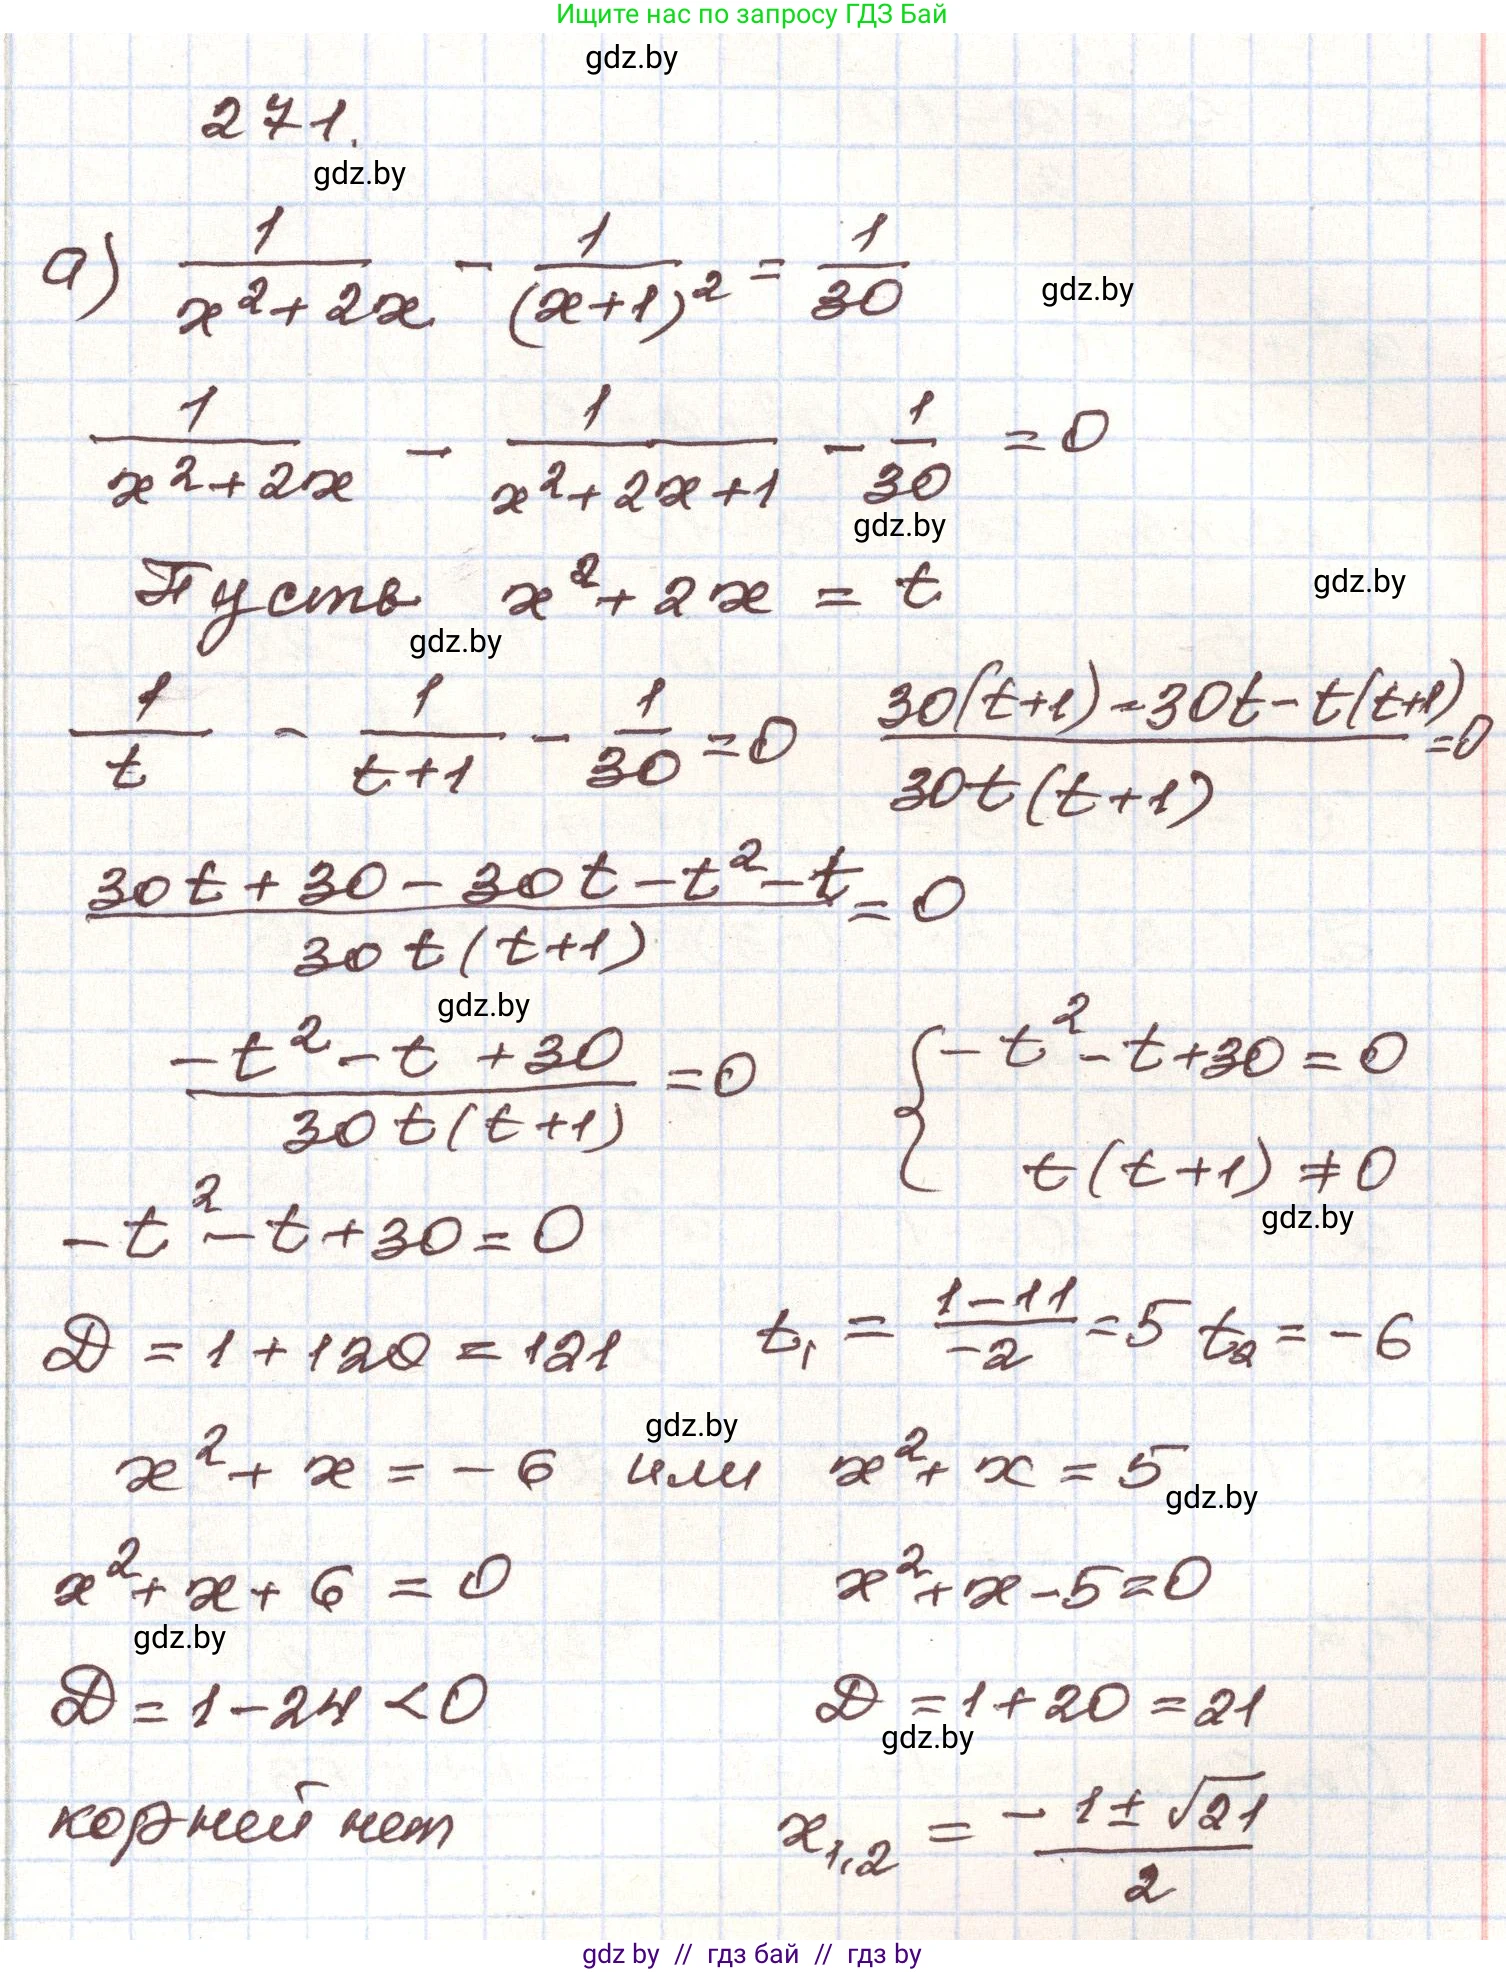 Ищите нас по запросу ГДЗ Бай
gdz.by
271.
gdz.by
а) 1/(x²+2x) - 1/(x+1)² = 1/30
gdz.by
1/(x²+2x) - 1/(x²+2x+1) - 1/30 = 0
gdz.by
Пусть x²+2x = t
gdz.by
gdz.by
1/t - 1/(t+1) - 1/30 = 0 (30(t+1)-30t-t(t+1))/(30t(t+1)) = 0
(30t+30-30t-t²-t)/(30t(t+1)) = 0
gdz.by
(-t²-t+30)/(30t(t+1)) = 0 { -t²-t+30=0
t(t+1)≠0
gdz.by
-t²-t+30=0
Д = 1+120 = 121 t₁ = (1-11)/(-2) = 5 t₂ = -6
gdz.by
x²+x = -6 или x²+x = 5
gdz.by
x²+x+6 = 0 x²+x-5=0
gdz.by
Д = 1-24 < 0 Д = 1+20 = 21
gdz.by
корней нет x₁,₂ = (-1±√21)/2
gdz by // гдз бай // гдз by